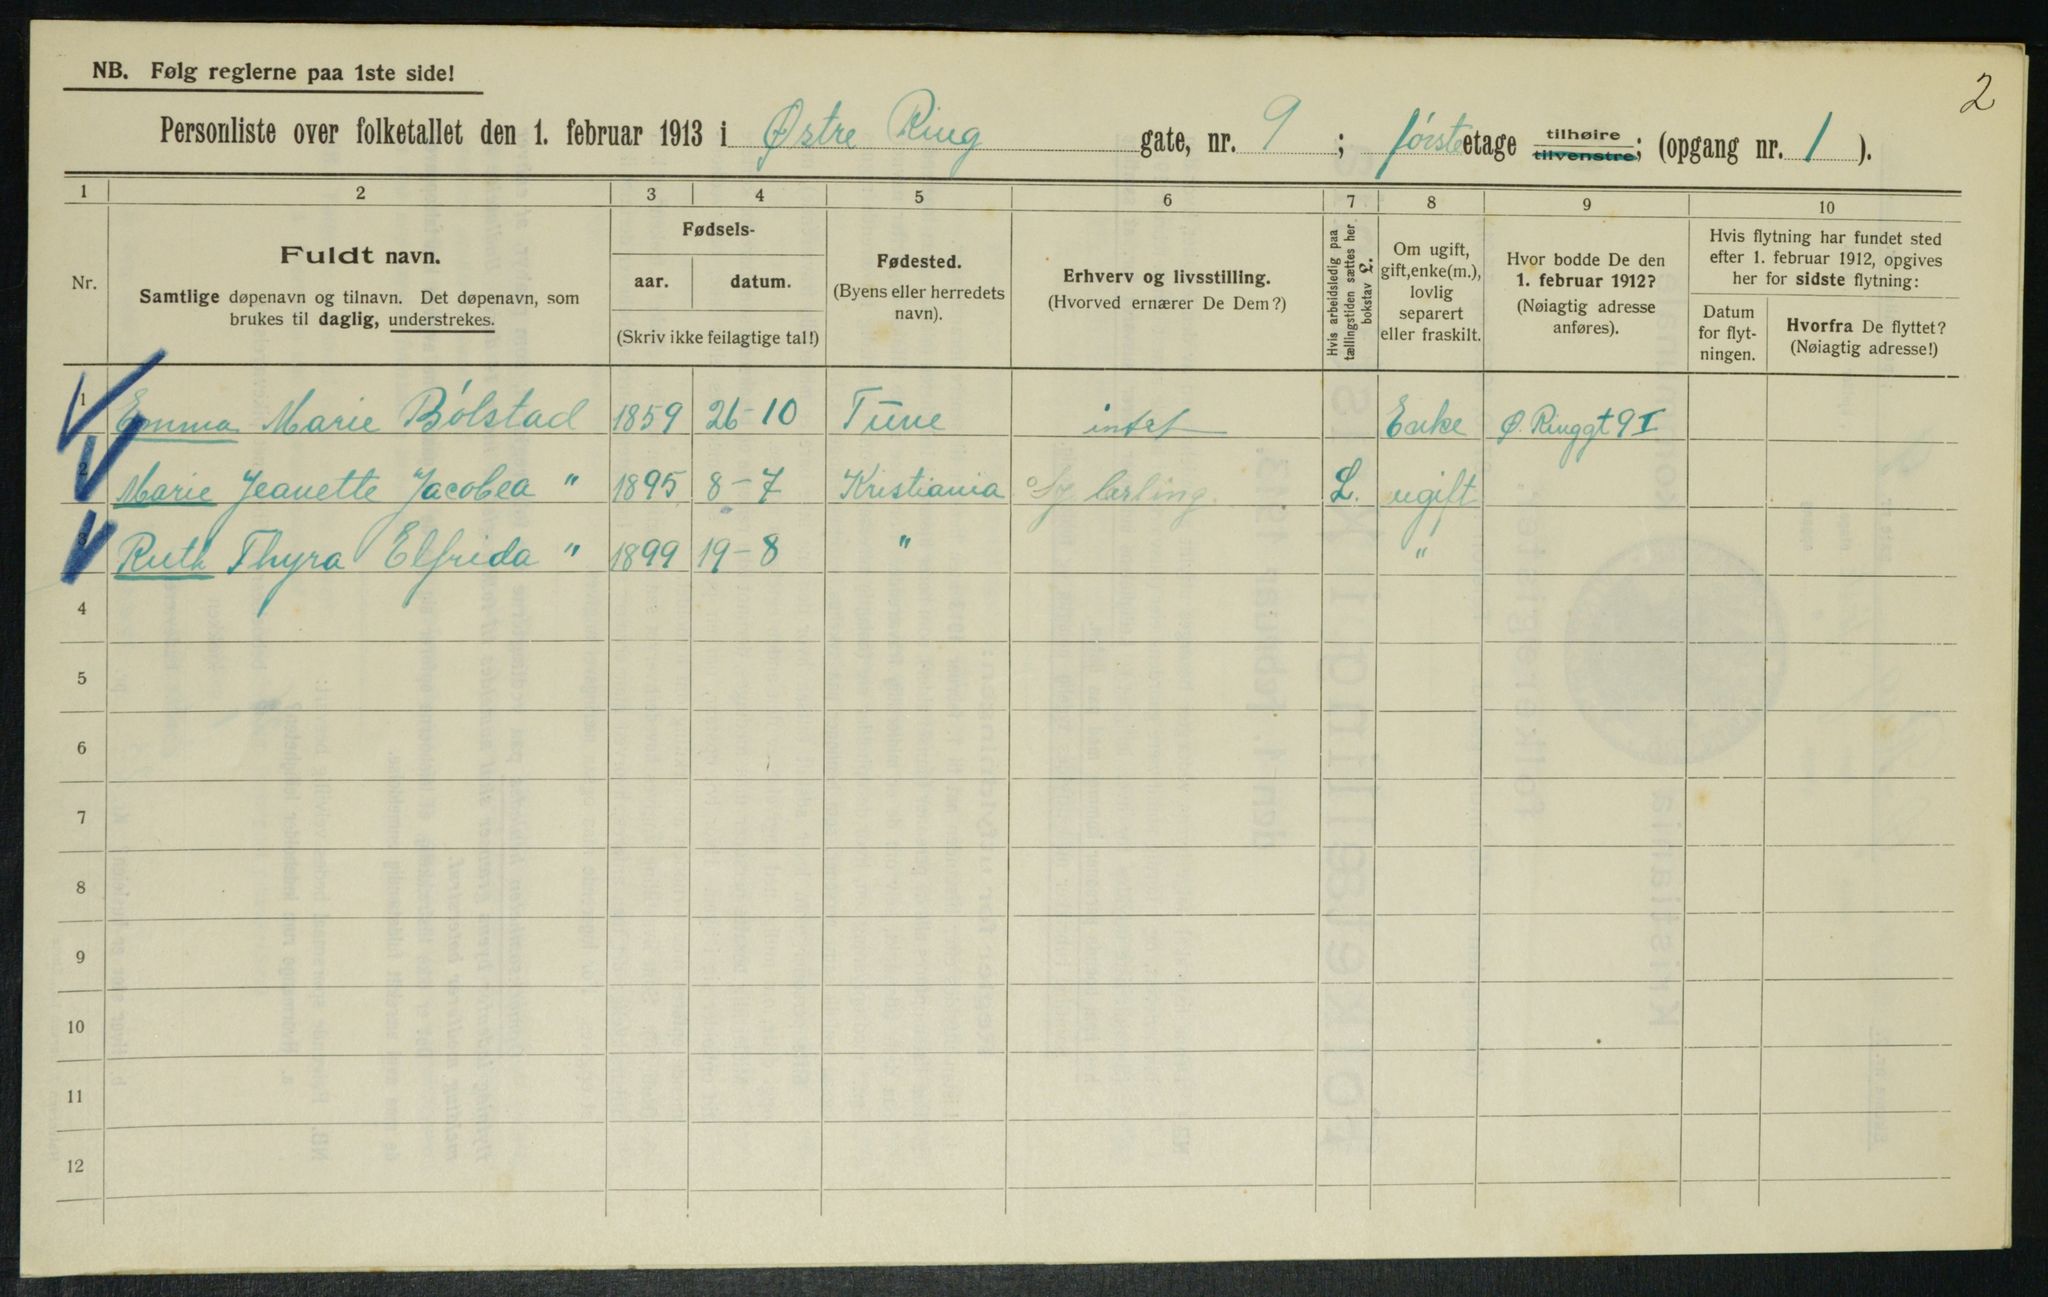 2
NB. Følg reglerne paa 1ste side!
Personliste over folketallet den 1. februar 1913 i Østre Ring gate, nr. 9 ; første etage tilhøire tilvenstre; (opgang nr. 1 ).
1 2 3 4 5 6 7 8 9 10
Nr.
Fuldt navn.
Samtlige døpenavn og tilnavn. Det døpenavn, som
brukes til daglig, understrekes.
Fødsels-
aar. datum.
(Skriv ikke feilagtige tal!)
Fødested.
(Byens eller herredets
navn).
Erhverv og livsstilling.
(Hvorved ernærer De Dem?)
Hvis arbeidsledig paa
tællingstiden sættes her
bokstav L.
Om ugift,
gift, enke(m.),
lovlig
separert
eller fraskilt.
Hvor bodde De den
1. februar 1912?
(Nøiagtig adresse
anføres).
Hvis flytning har fundet sted
efter 1. februar 1912, opgives
her for sidste flytning:
Datum
for flyt-
ningen.
Hvorfra De flyttet?
(Nøiagtig adresse!)
1 Emma Marie Bölstad 1859 26-10 Tune intet Enke Ø. Ringgt 9 I
2 Marie Jeanette Jacobea " 1895 8-7 Kristiania Sylærling. L. ugift
3 Ruth Thyra Elfrida " 1899 19-8 " "
4
5
6
7
8
9
10
11
12